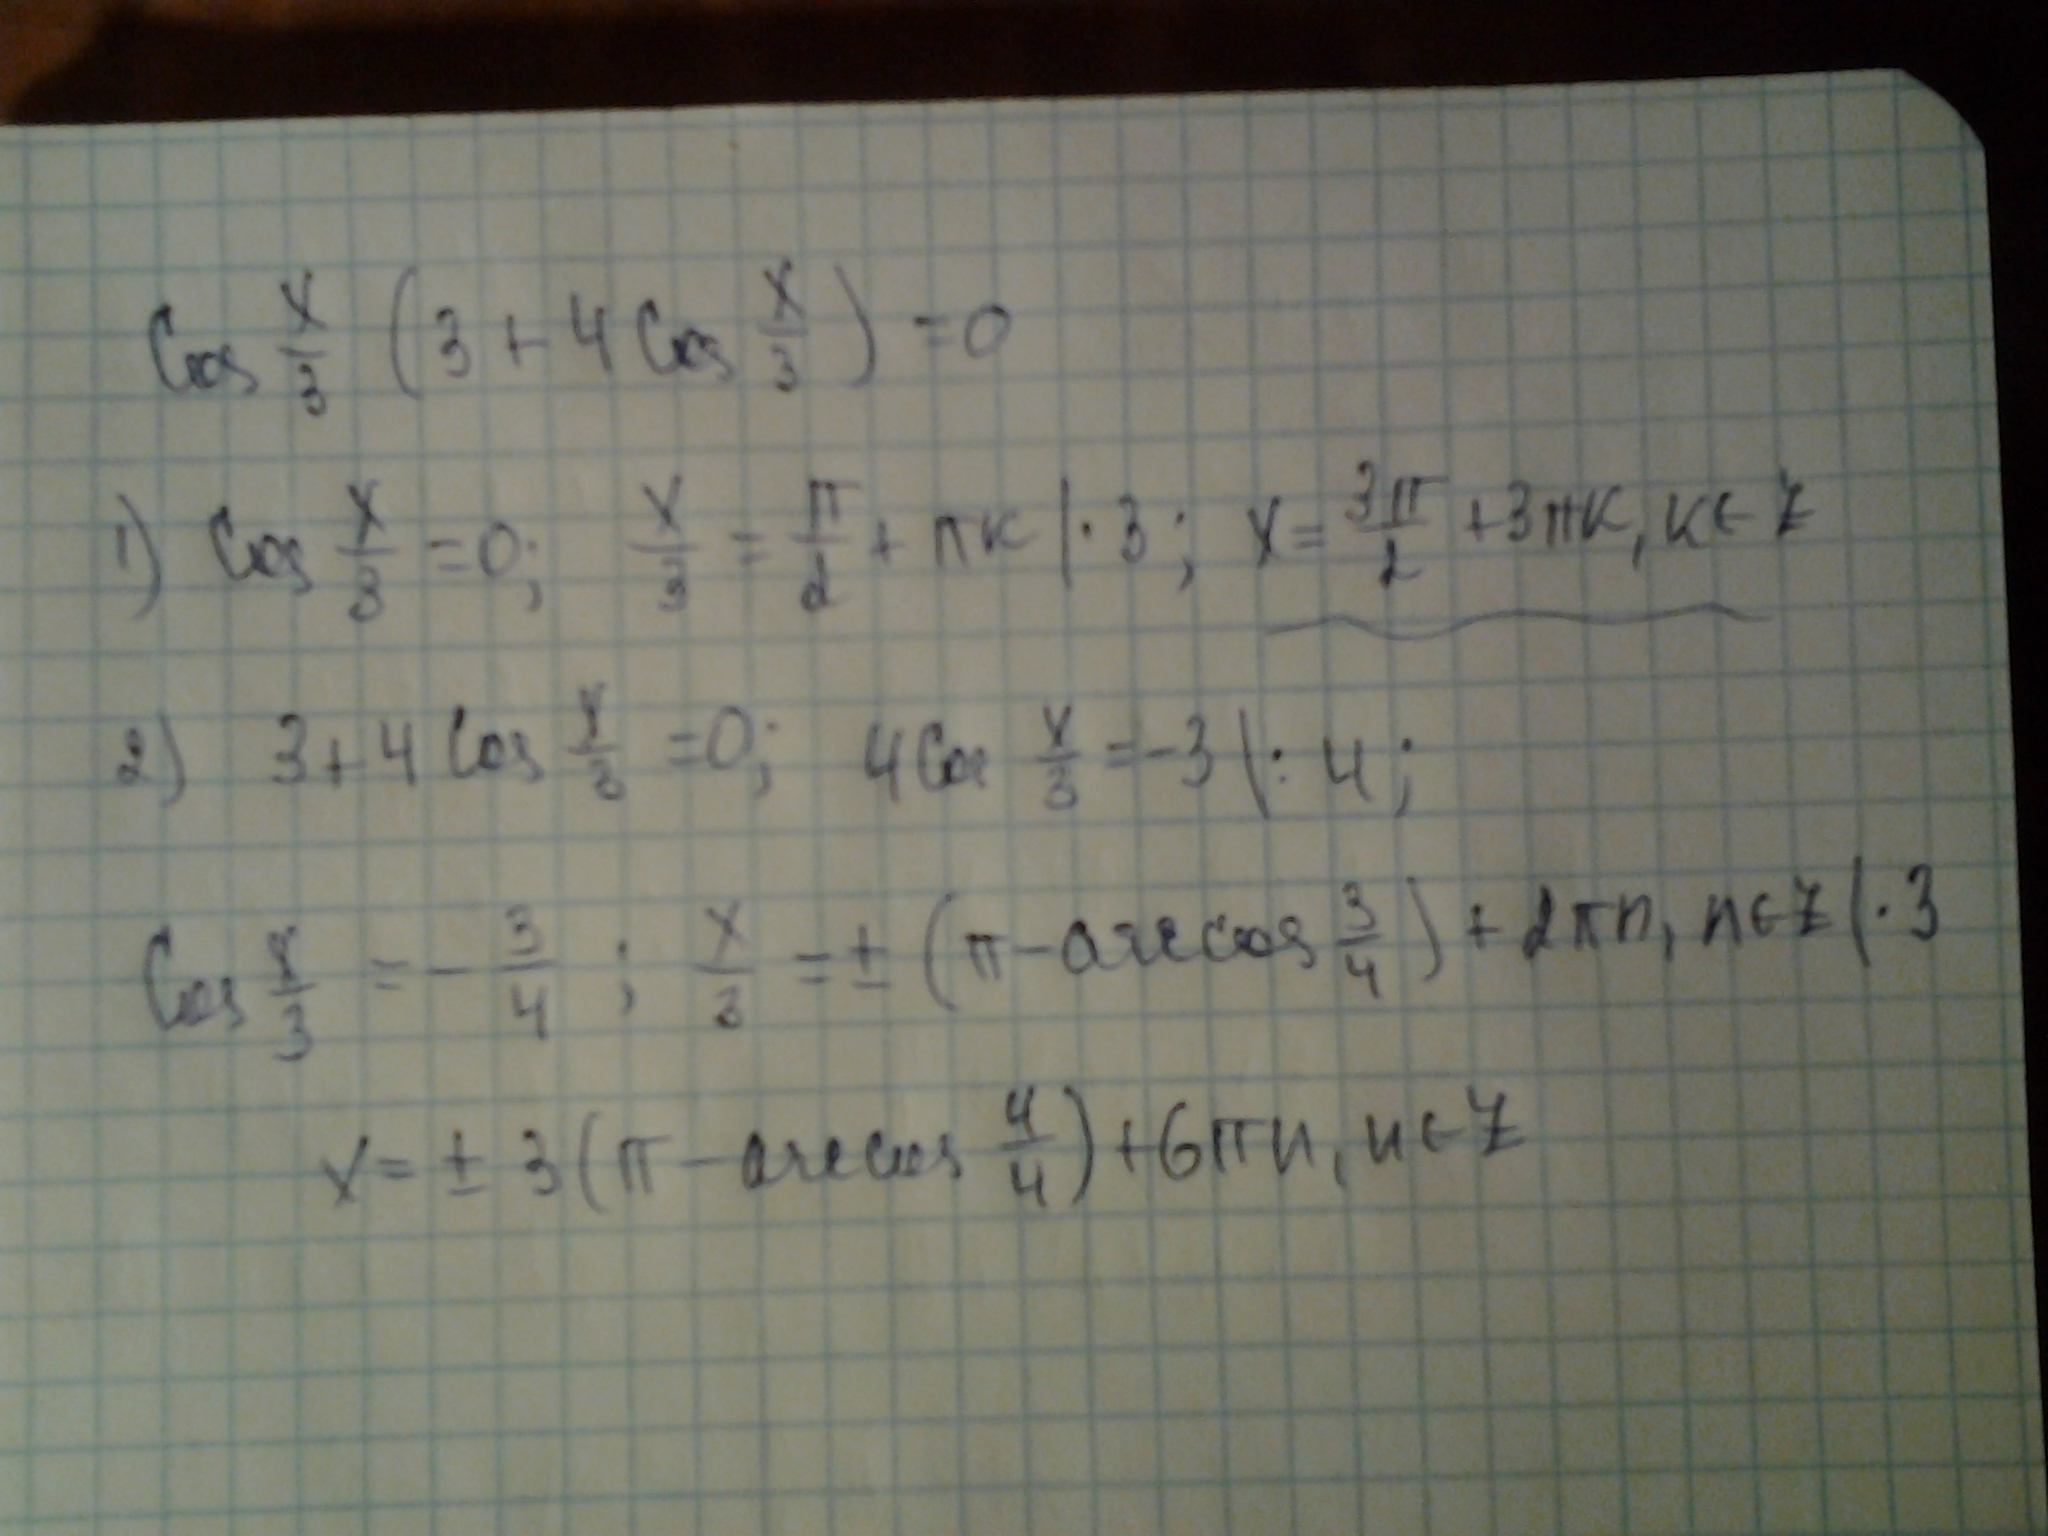 Cos x/3 (3 + 4 Cos x/3) = 0
1) Cos x/3 = 0; x/3 = π/2 + πк | · 3; x = 3π/2 + 3πк, к ∈ Z
2) 3 + 4 Cos x/3 = 0; 4 Cos x/3 = -3 | : 4;
Cos x/3 = - 3/4 ; x/3 = ± (π - arccos 3/4) + 2πn, n ∈ Z | · 3
x = ± 3(π - arccos 4/4) + 6πn, n ∈ Z